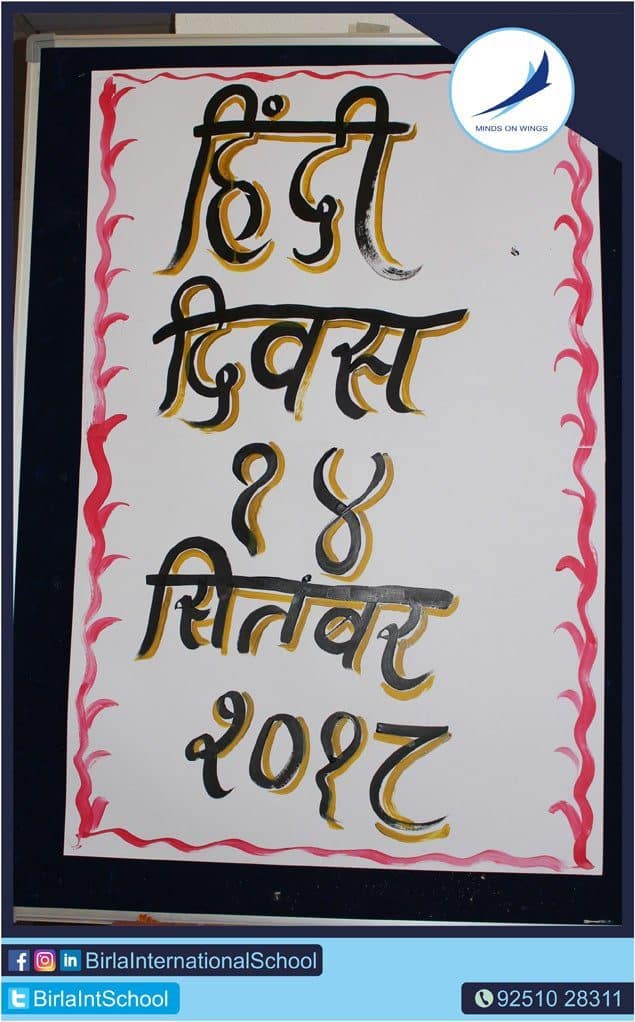 MINDS ON WINGS
हिंदी
दिवस
१४
सितंबर
२०१८
BirlaInternationalSchool
BirlaIntSchool
92510 28311